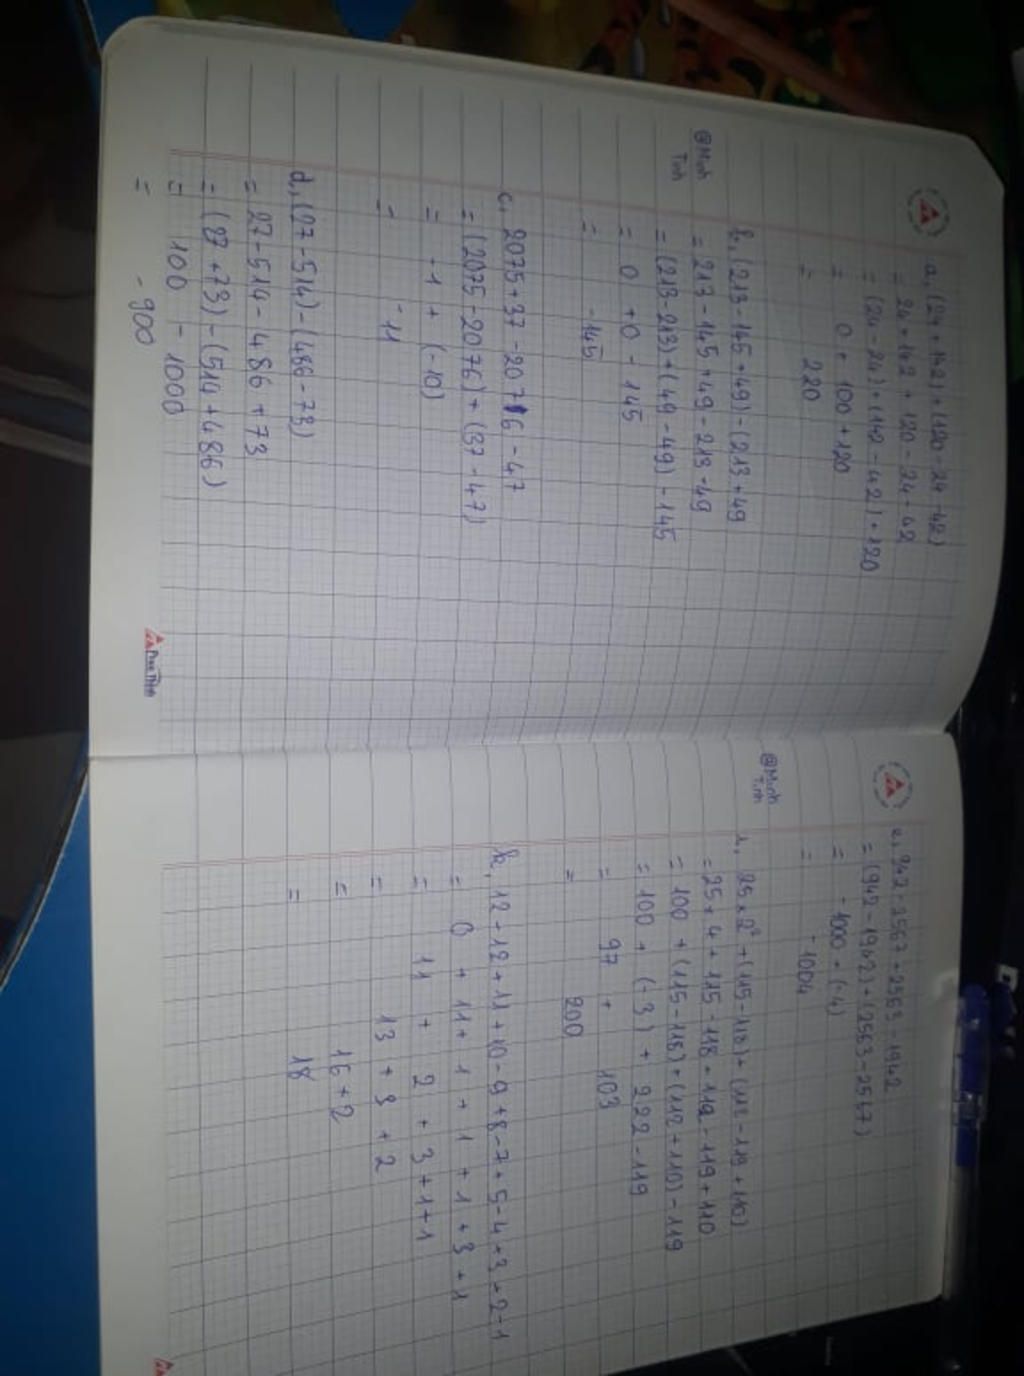 a, (24 + 142) + (120 - 24 - 42)
= 24 + 142 + 120 - 24 - 42
= (24 - 24) + (142 - 42) + 120
= 0 + 100 + 120
= 220
b, (213 - 145 + 49) - (213 + 49
= 213 - 145 + 49 - 213 - 49
= (213 - 213) + (49 - 49) - 145
= 0 + 0 - 145
= -145
@Minh
Tinh
c, 2075 + 37 - 2076 - 47
= (2075 - 2076) + (37 - 47)
= -1 + (-10)
= -11
d, (27 - 514) - (486 - 73)
= 27 - 514 - 486 + 73
= (27 + 73) - (514 + 486)
= 100 - 1000
= -900
e, 942 - 2567 + 2563 - 1942
= (942 - 1942) + (2563 - 2567)
= -1000 + (-4)
= -1004
@Minh
Tinh
25 × 2² + (115 - 118) + (112 - 119 + 110)
= 25 × 4 + 115 - 118 + 112 - 119 + 110
= 100 + (115 - 118) + (112 + 110) - 119
= 100 + (-3) + 222 - 119
= 97 + 103
= 200
k, 12 - 12 + 11 + 10 - 9 + 8 - 7 + 5 - 4 + 3 + 2 - 1
= 0 + 11 + 1 + 1 + 1 + 3 + 1
= 11 + 2 + 3 + 1 + 1
= 13 + 3 + 2
= 16 + 2
= 18